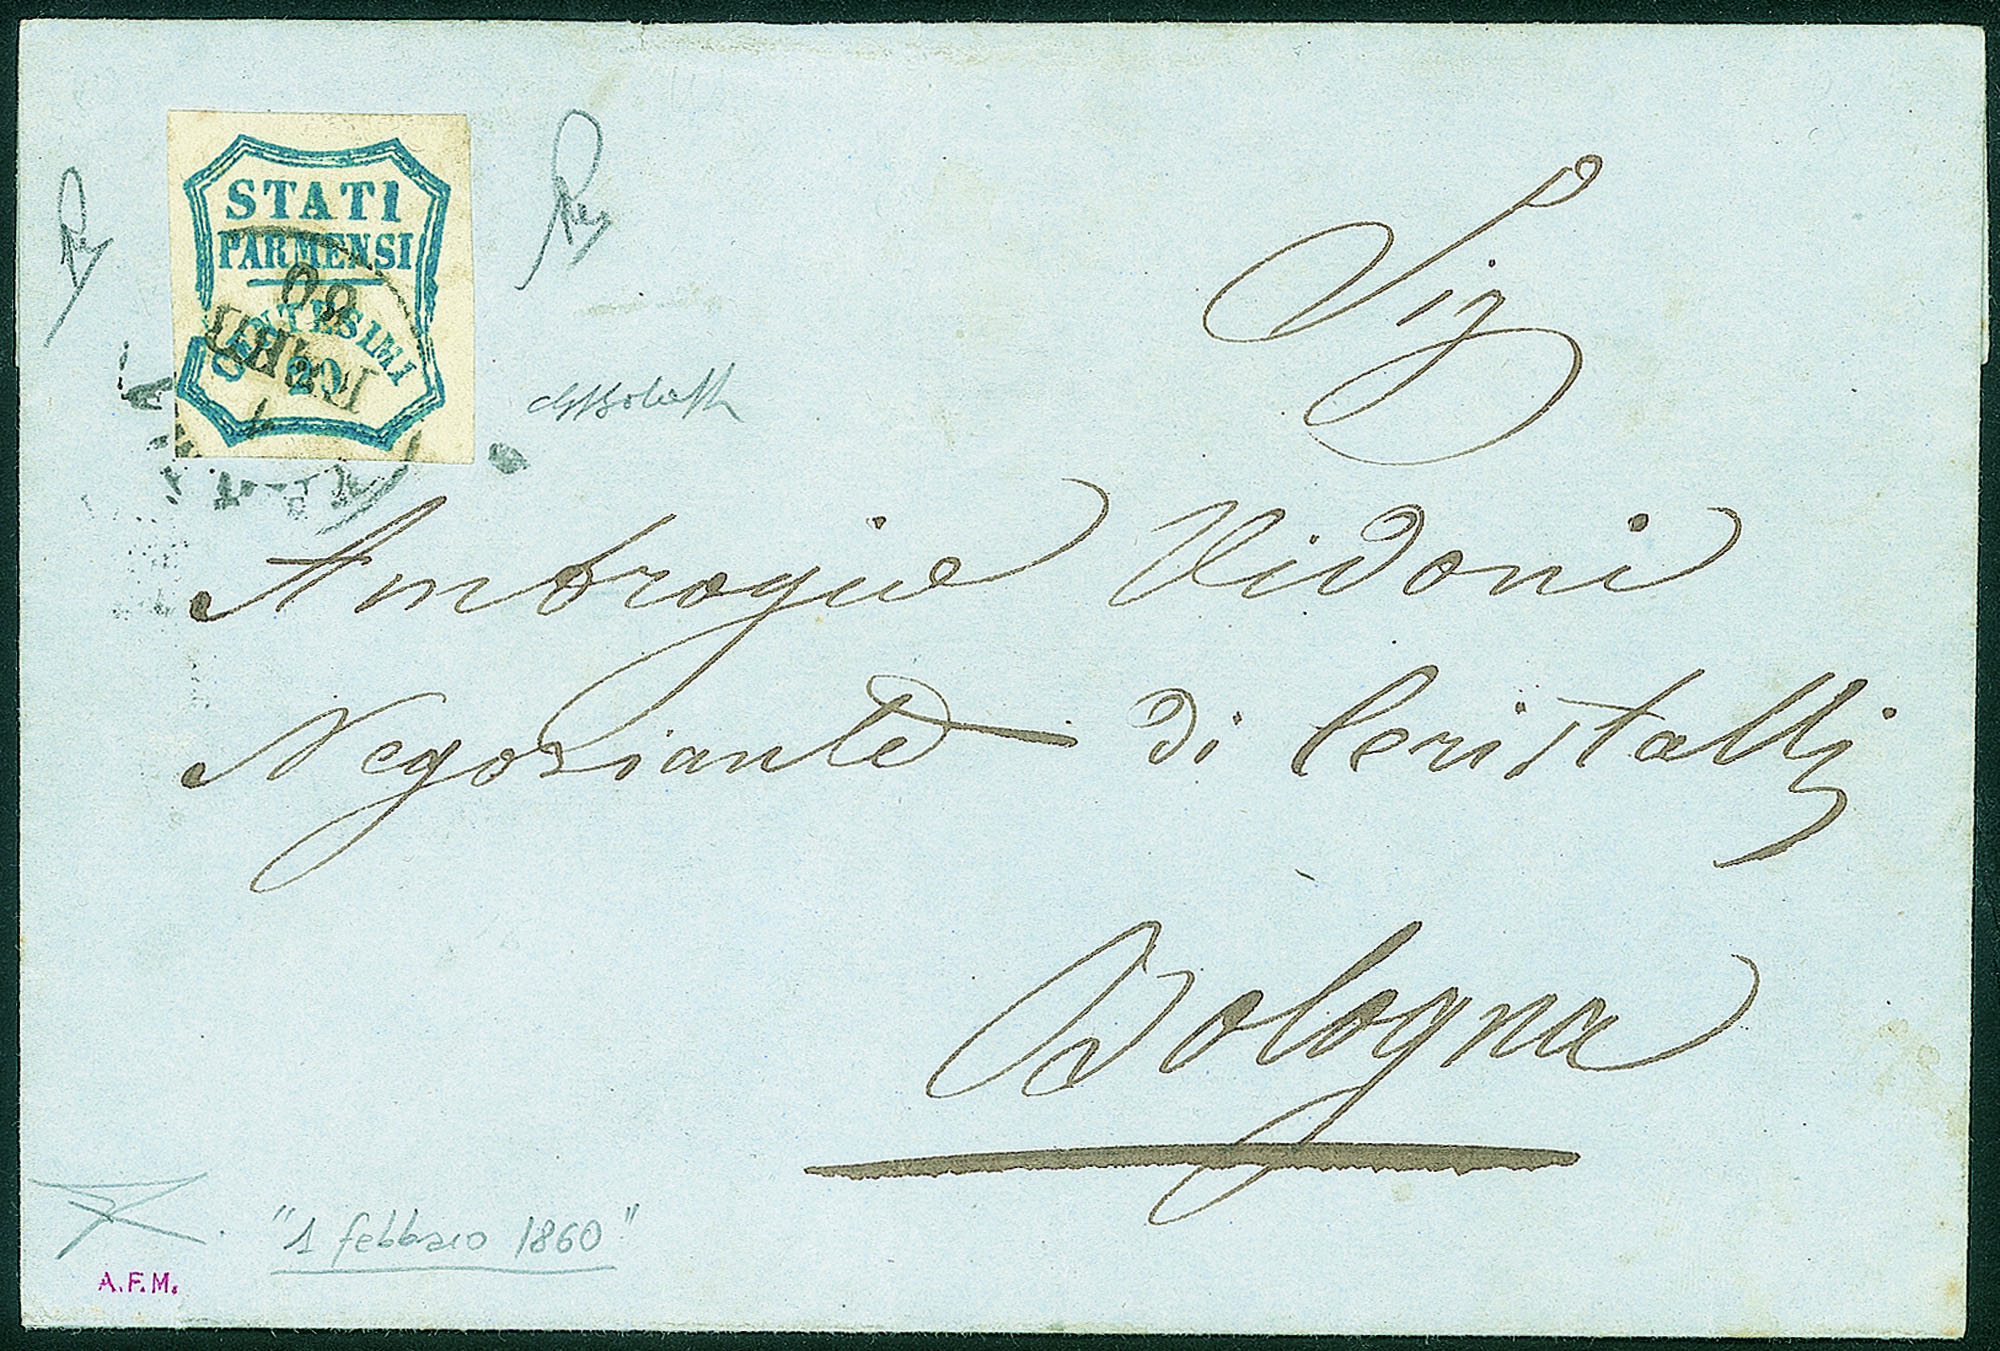 STATI
PARMENSI
CENTESIMI
20
60
1
Sig
Ambrogio Vidoni
Negoziante di Cristalli
Bologna
"1 febbraio 1860"
A.F.M.